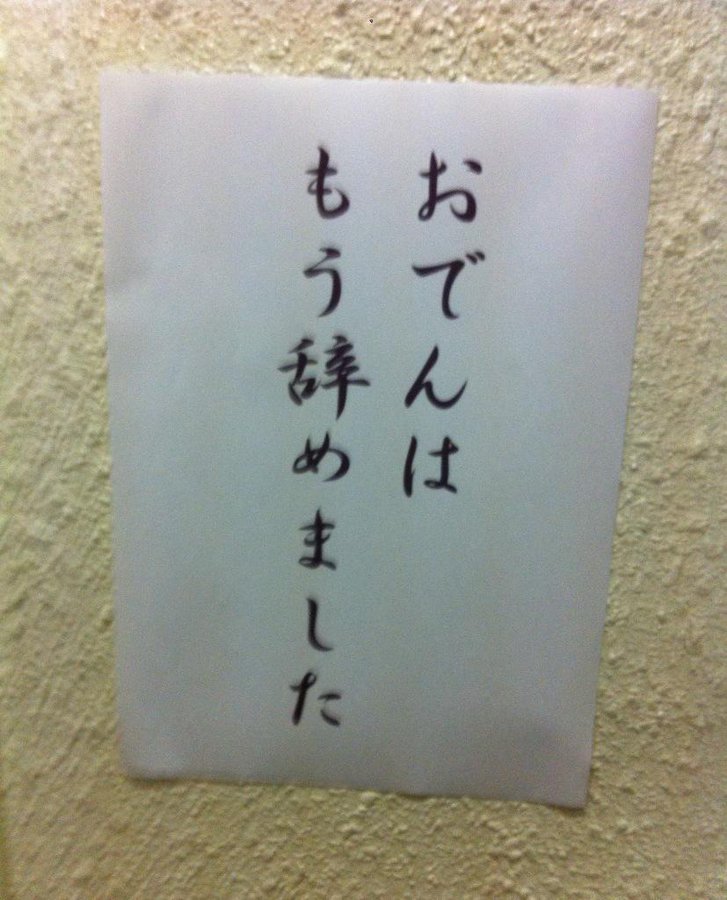 おでんは
もう辞めました